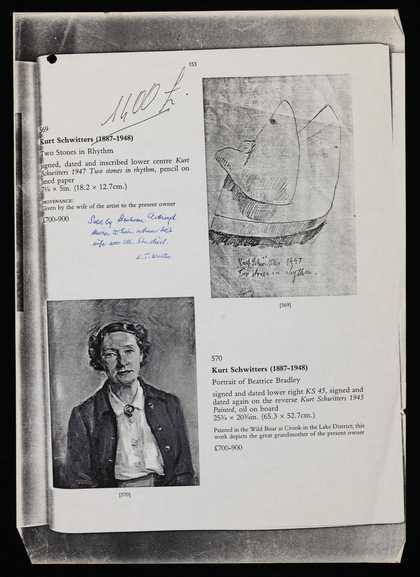 153
1400 £.
569
Kurt Schwitters (1887-1948)
Two Stones in Rhythm
signed, dated and inscribed lower centre Kurt
Schwitters 1947 Two stones in rhythm, pencil on
lined paper
7¼ × 5in. (18.2 × 12.7cm.)
PROVENANCE:
Given by the wife of the artist to the present owner
£700-900
Sold by
wife
Kurt Schwitters 1947
Two stones in rhythm.
[569]
570
Kurt Schwitters (1887-1948)
Portrait of Beatrice Bradley
signed and dated lower right KS 45, signed and
dated again on the reverse Kurt Schwitters 1945
Painted, oil on board
25¾ × 20¾in. (65.3 × 52.7cm.)
Painted in the Wild Boar at Crook in the Lake District, this
work depicts the great grandmother of the present owner
£700-900
[570]